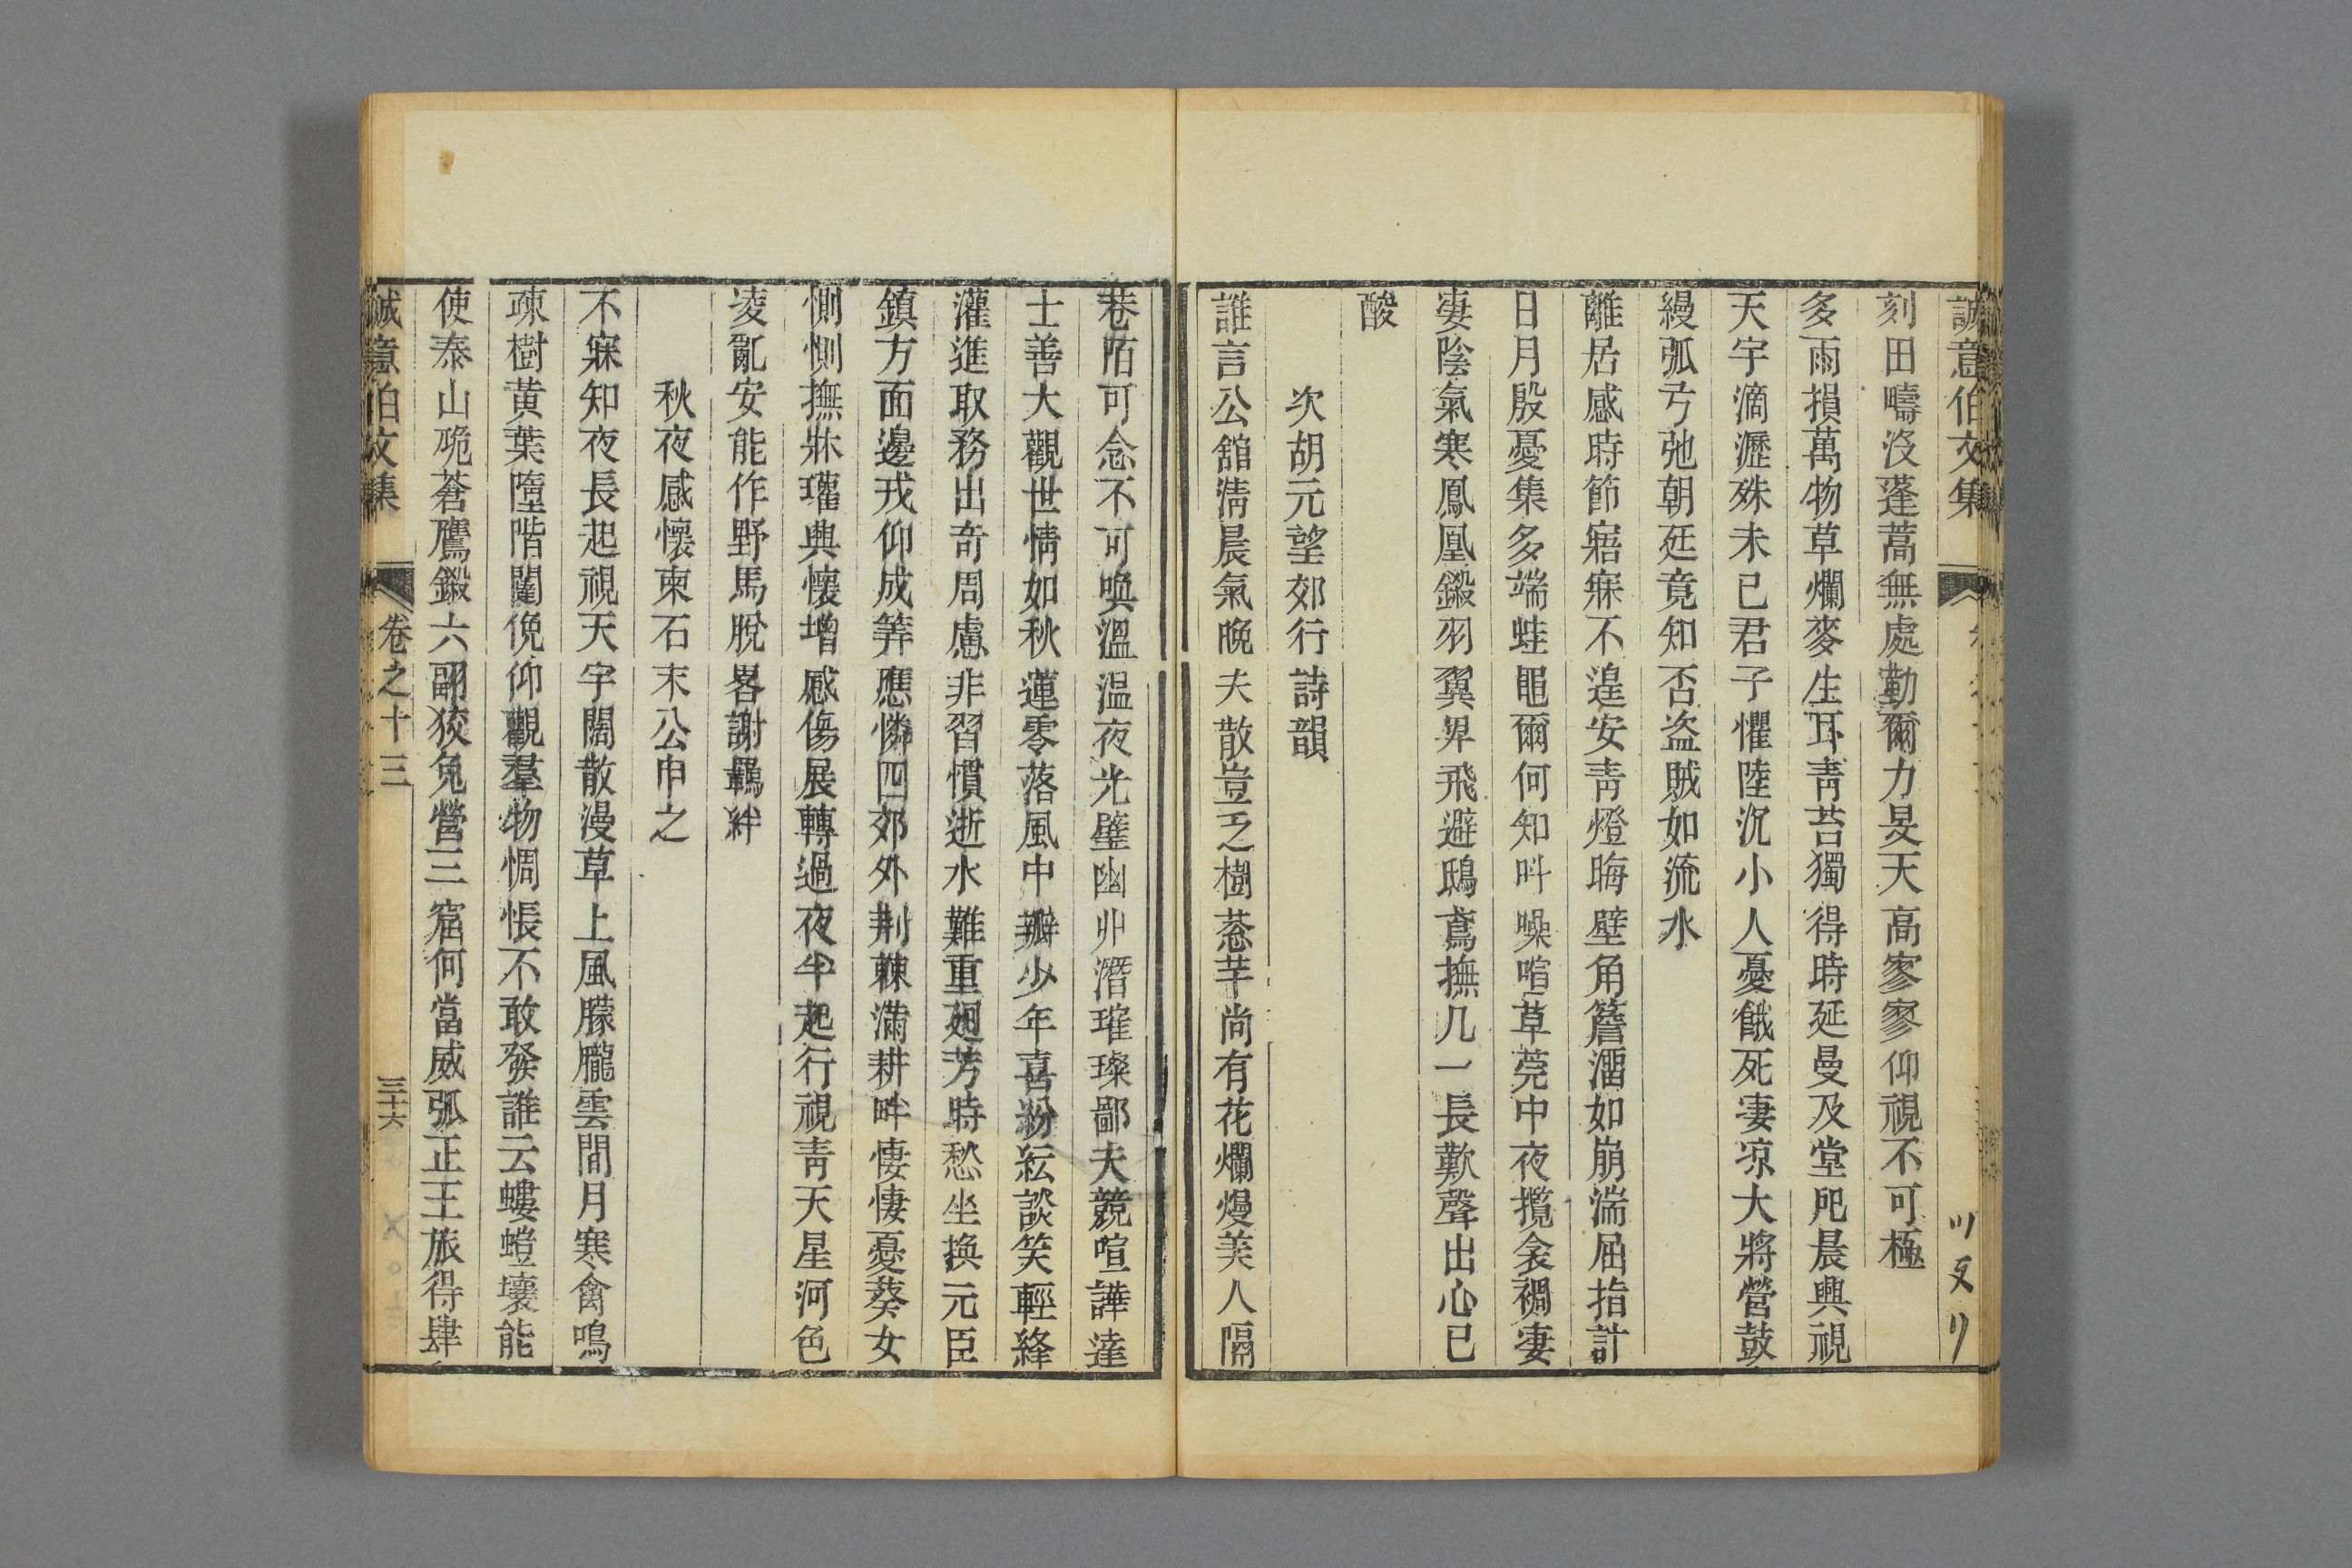 誠意伯文集
刻田疇沒蓬蒿無處勤爾力旻天高寥寥仰視不可極
多雨損萬物草爛麥生耳靑苔獨得時延曼及堂戺晨興視
天宇滴瀝殊未已君子懼陸沉小人憂餓死凄凉大將營鼓
縵弧弓弛朝廷竟知否盜賊如流水
離居感時節寤寐不遑安靑燈晦壁角簷溜如崩湍屈指計
日月殷憂集多端蛙黽爾何知叫噪喧草莞中夜攬衾裯凄
凄陰氣寒鳳凰鎩羽翼畀飛避鴟鳶撫几一長歎聲出心已
酸
次胡元望郊行詩韻
誰言公舘淸晨氣晚夫散豈乏樹蔥芊尚有花爛熳美人隔
巷陌可念不可喚溫溫夜光璧幽丱潛璀璨鄙夫競喧譁達
士善大觀世情如秋蓮零落風中瓣少年喜紛紜談笑輕絳
灌進取務出奇周慮非習慣逝水難重廻芳時愁坐換元臣
鎮方面邊戎仰成筭應憐四郊外荆棘滿耕畔悽悽憂葵女
惻惻撫牀瓘興懷增感傷展轉過夜半起行視靑天星河色
凌亂安能作野馬脫畧謝羈絆
秋夜感懷柬石末公申之
不寐知夜長起視天宇闊散漫草上風朦朧雲間月寒禽鳴
疎樹黄葉墮階闥俛仰觀羣物惆悵不敢發誰云螻螘壤能
使泰山硊蒼鷹鎩六翮狡兔營三窟何當威弧正王旅得肆
誠意伯文集
卷之十三
三十六